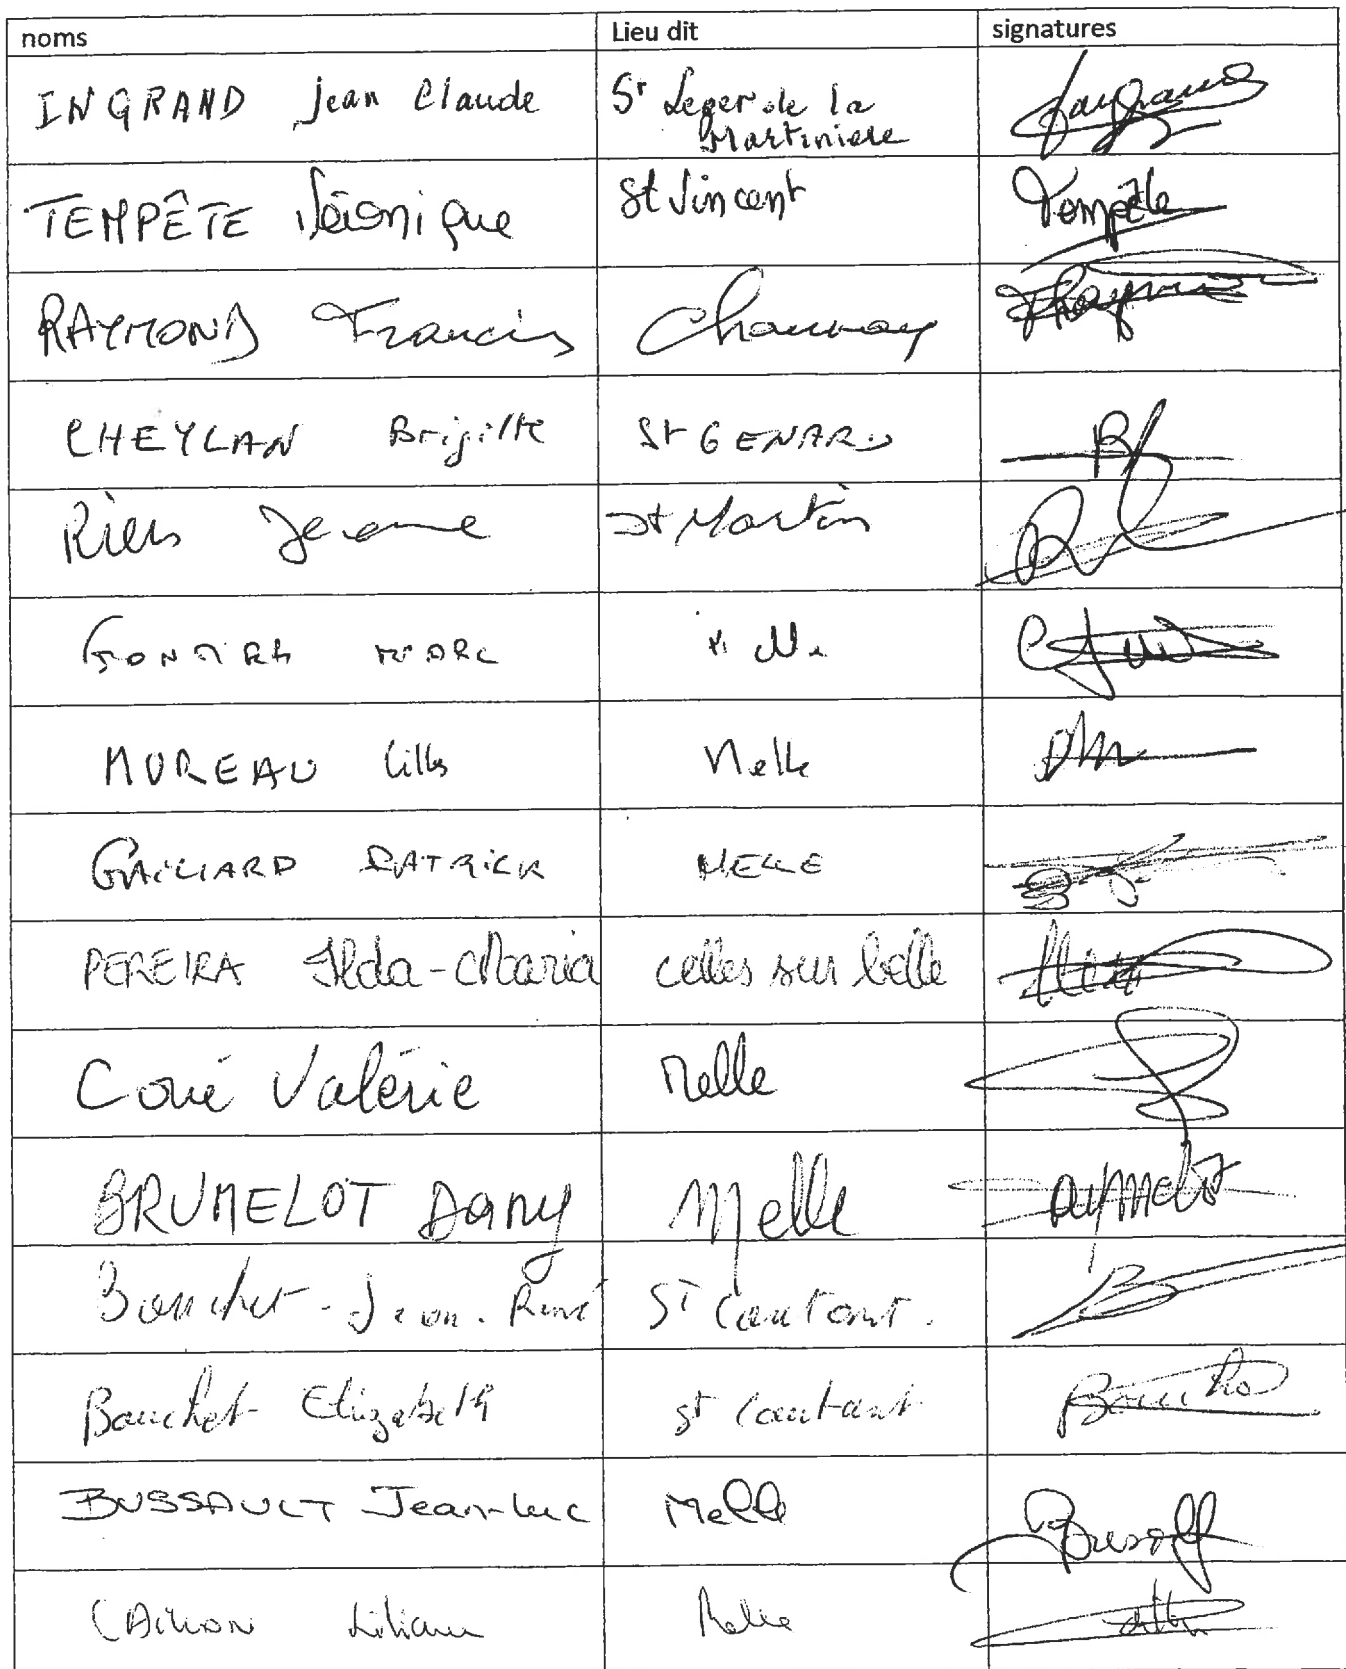 noms Lieu dit signatures
INGRAND Jean Claude St Leger de la
Martiniere
TEMPÊTE Véronique St Vincent Tempête
RAYMOND Francis Chaunay
CHEYLAN Brigitte St GENARD
Jerome St Martin
MARC Melle
MUREAU Gilles Melle
GAILLARD PATRICK MELLE
PEREIRA Ilda-Maria celles sur belle
Coué Valérie Melle
BRUMELOT Dany Melle
Bouchet - Jean-René St Coutant.
Bouchet Elizabeth st Coutant
BUSSAULT Jean-Luc Melle
Liliane Melle